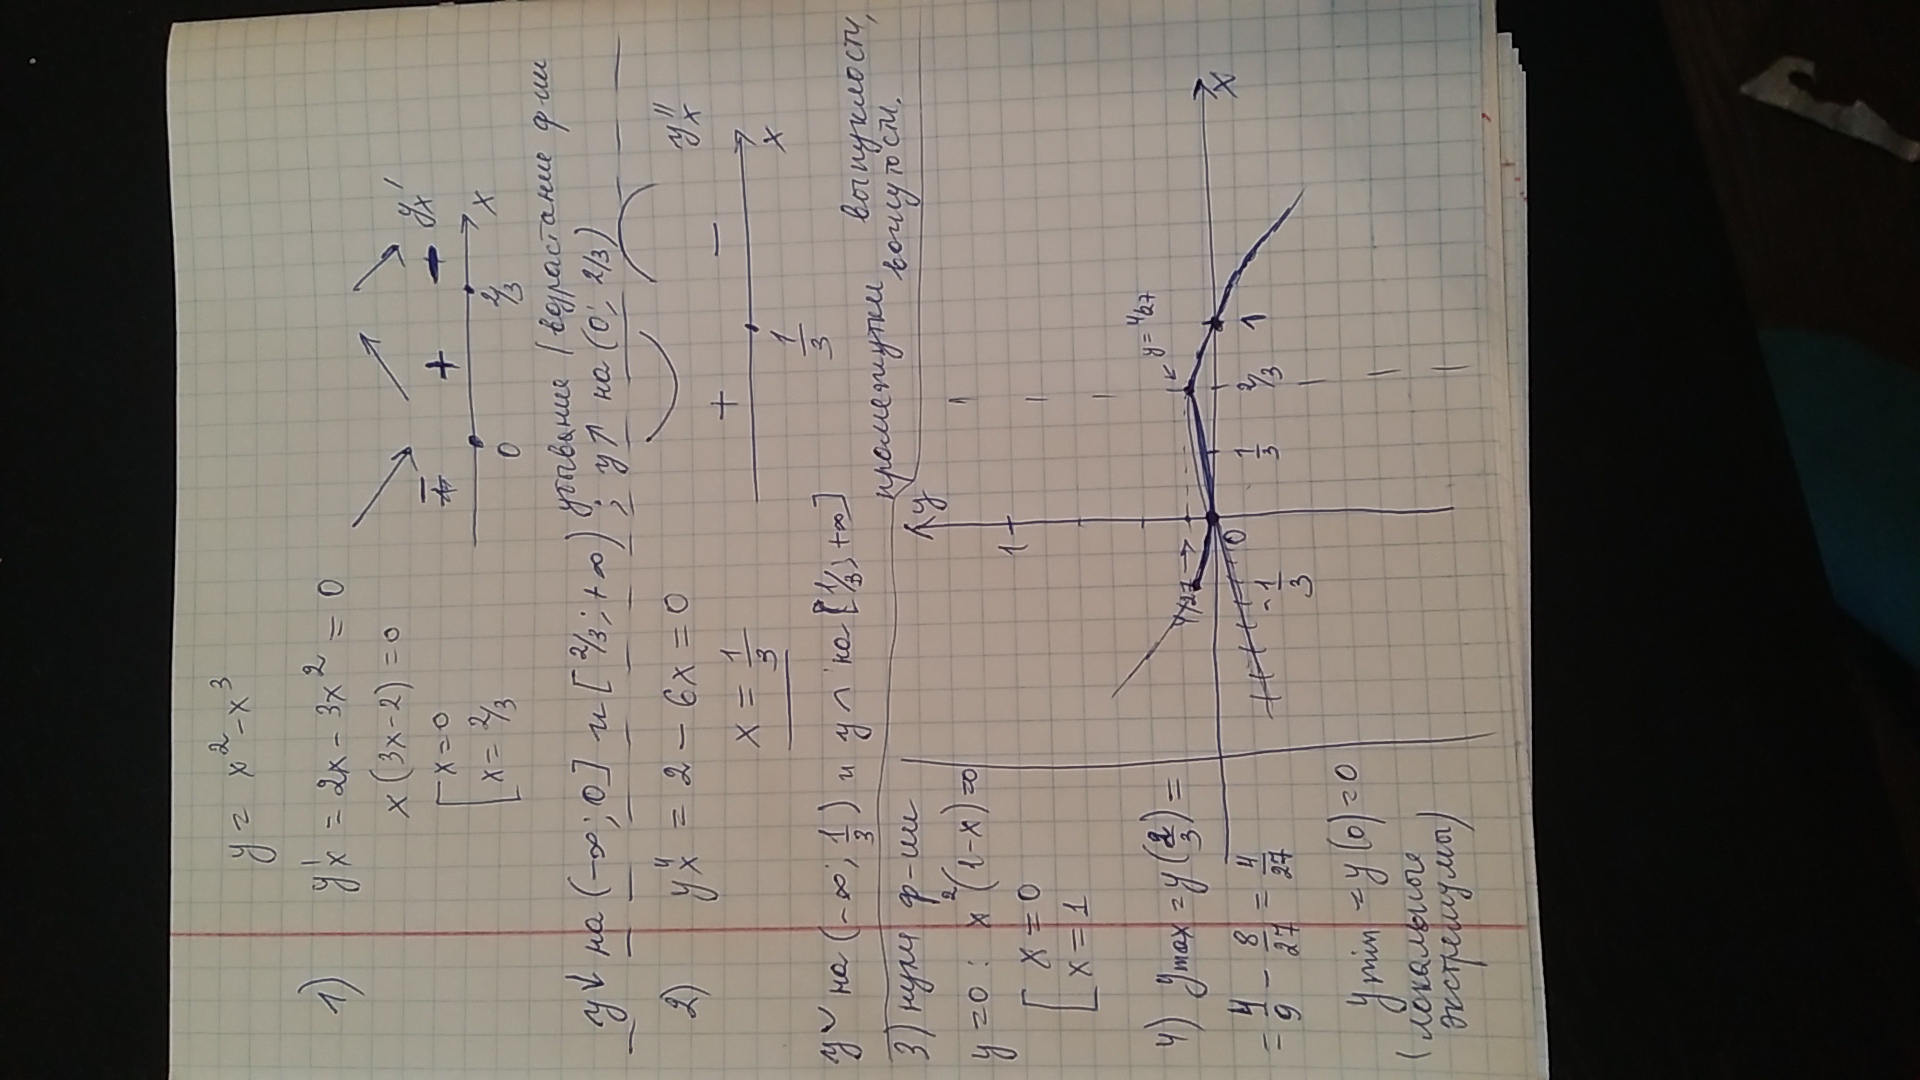 y = x² - x³
1) y'ₓ = 2x - 3x² = 0
x(3x-2)=0
[ x=0
x=2/3
- + - y'ₓ
0 2/3 x
y↓ на (-∞; 0] и [2/3; +∞) ; y↑ на (0; 2/3)
убывание / возрастание ф-ии
2) y''ₓ = 2 - 6x = 0
x = 1/3
+ - y''ₓ
1/3 x
y ∨ на (-∞; 1/3) и y ∩ на [1/3; +∞]
промежутки выпуклости,
вогнутости.
3) нули ф-ии
y=0: x²(1-x)=0
[ x=0
x=1
4) ymax = y(2/3) =
= 4/9 - 8/27 = 4/27
ymin = y(0)=0
(локальные
экстремумы)
y
1
y=4/27
4/27
-1/3 0 1/3 2/3 1 x